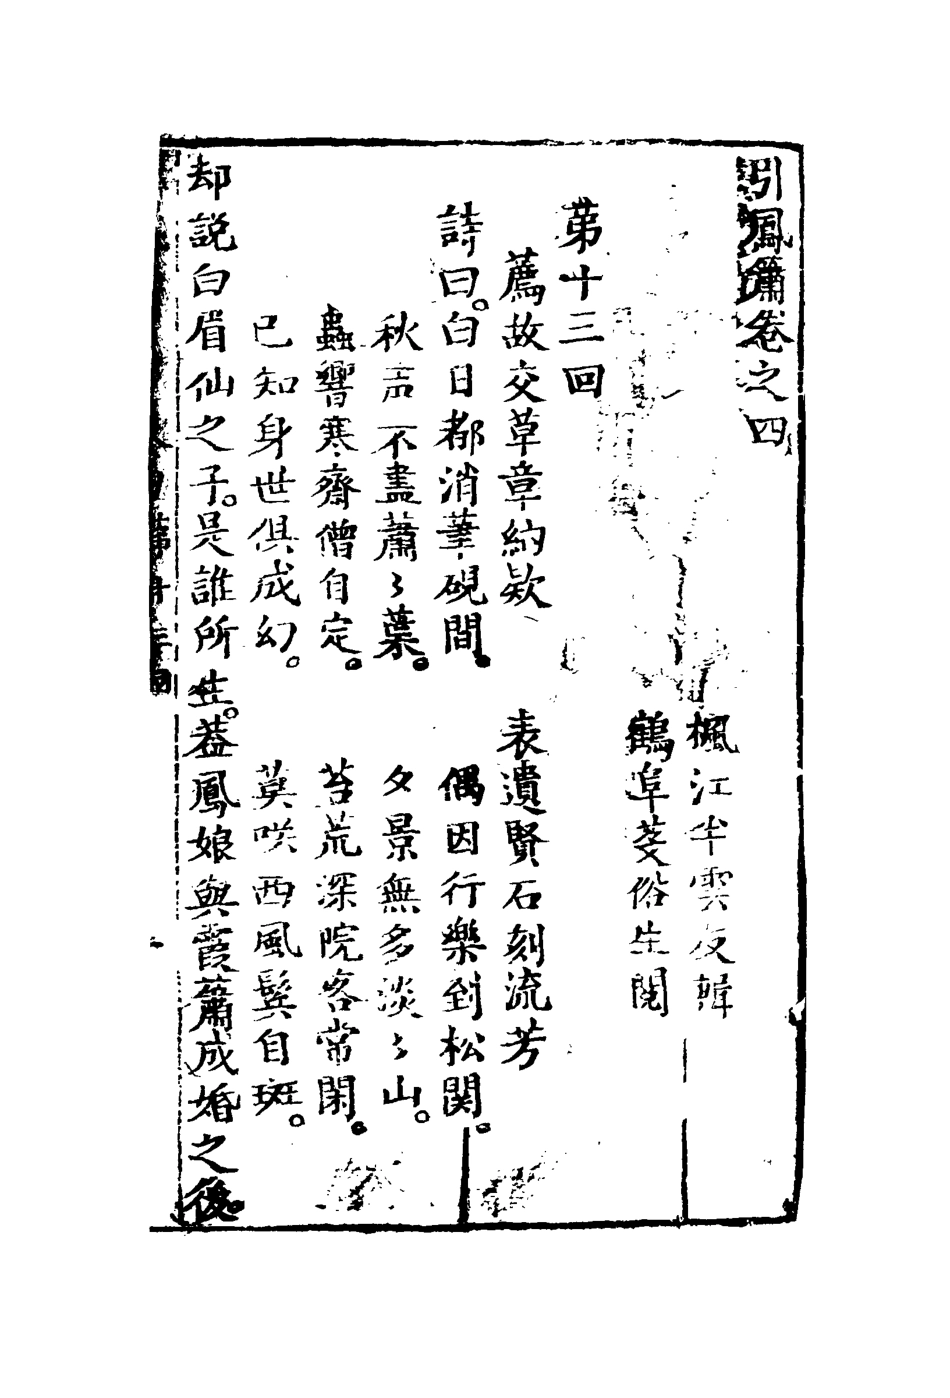 引鳳簫卷之四
楓江半雲友輯
鶴阜芟俗生閱
第十三回
薦故交草章納欵　表遺賢石刻流芳
詩曰。白日都消筆硯間。偶因行樂到松関。
秋声不盡蕭〻葉。夕景無多淡〻山。
蟲響寒齋僧自定。苔荒深院客常閑。
已知身世俱成幻。莫咲西風鬂自斑。
却說白眉仙之子。是誰所生。葢鳳娘與霞蕭成婚之後。